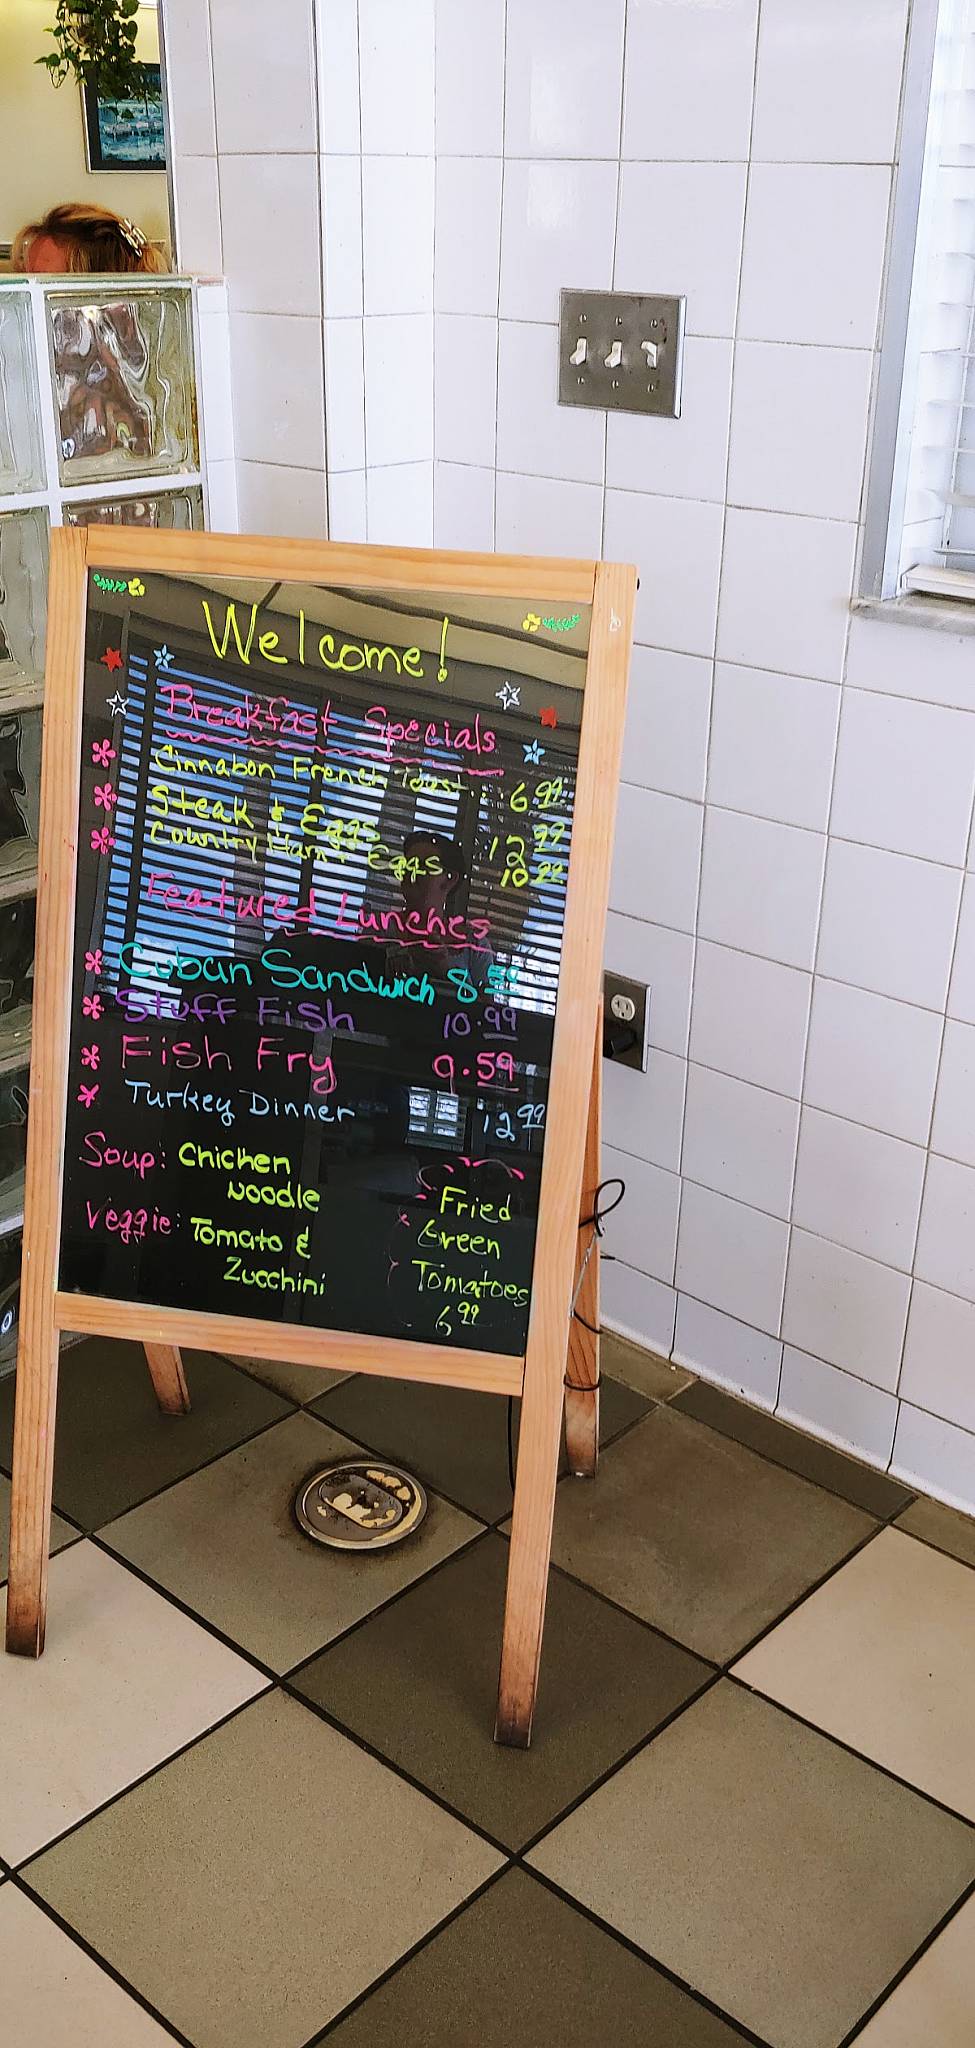 Welcome!
Breakfast Specials
Cinnabon French Toast... 6.99
Steak & Eggs 12 99
Country Ham + Eggs.... 10.99
Featured Lunches
Cuban Sandwich 8.59
Stuff Fish 10.99
Fish Fry 9.59
Turkey Dinner 12 99
Soup: Chicken
Noodle
Veggie: Tomato &
Zucchini
Fried
Green
Tomatoes
6 99